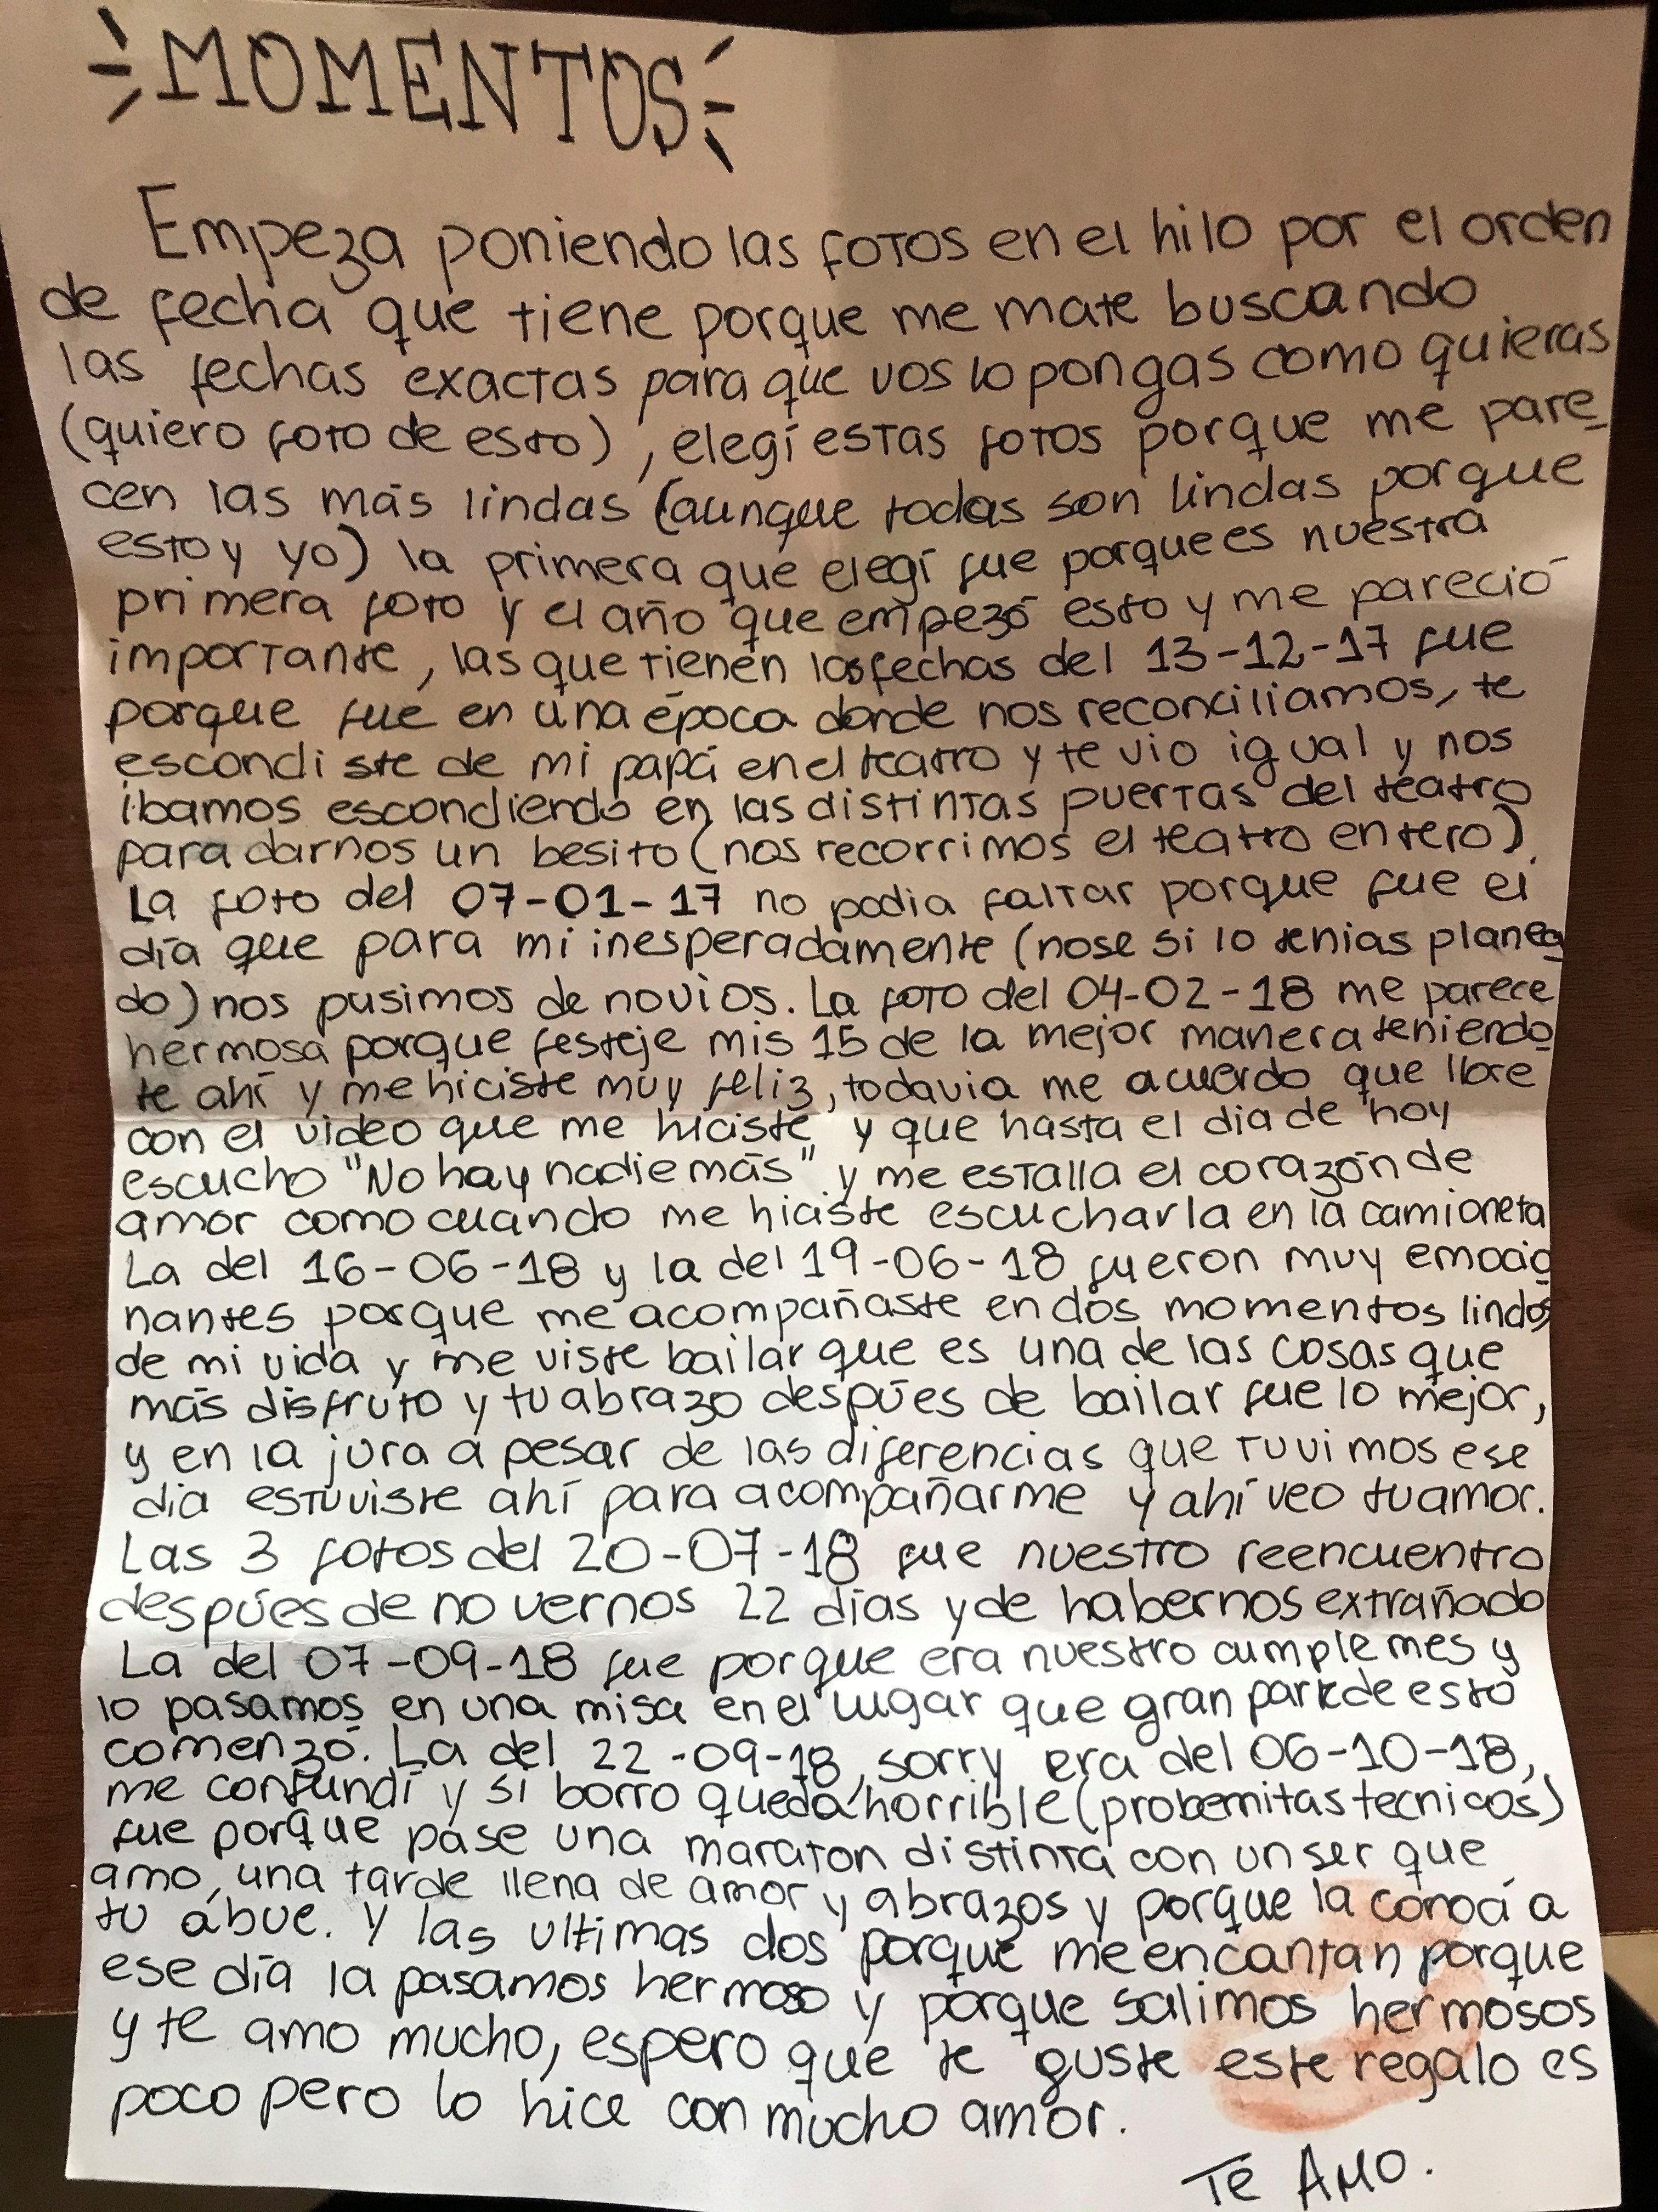 MOMENTOS
Empeza poniendo las fotos en el hilo por el orden
de fecha que tiene porque me mate buscando
las fechas exactas para que vos lo pongas como quieras
(quiero foto de esto), elegí estas fotos porque me pare
cen las más lindas (aunque todas son lindas porque
estoy yo) la primera que elegí fue porque es nuestra
primera foto y el año que empezó esto y me pareció
importante, las que tienen las fechas del 13-12-17 fue
porque fue en una época donde nos reconciliamos, te
escondiste de mi papá en el teatro y te vio igual y nos
ibamos escondiendo en las distintas puertas del teatro
para darnos un besito (nos recorrimos el teatro entero).
La foto del 07-01-17 no podia faltar porque fue el
día que para mi inesperadamente (nose si lo tenias planea
do) nos pusimos de novios. La foto del 04-02-18 me parece
hermosa porque festeje mis 15 de la mejor manera teniendo
te ahí y me hiciste muy feliz, todavia me acuerdo que llore
con el video que me hiciste, y que hasta el dia de hoy
escucho "No hay nadie más" y me estalla el corazón de
amor como cuando me hiciste escucharla en la camioneta
La del 16-06-18 y la del 19-06-18 fueron muy emocio
nantes porque me acompañaste en dos momentos lindos
de mi vida y me viste bailar que es una de las cosas que
más disfruto y tu abrazo despúes de bailar fue lo mejor,
y en la jura a pesar de las diferencias que tuvimos ese
dia estuviste ahí para acompañarme y ahí veo tu amor.
Las 3 fotos del 20-07-18 fue nuestro reencuentro
despúes de no vernos 22 dias y de habernos extrañado
La del 07-09-18 fue porque era nuestro cumple mes y
lo pasamos en una misa en el lugar que gran parte de esto
comenzó. La del 22-09-18, sorry era del 06-10-18,
me confundí y si borro queda horrible (probemitas tecnicos)
fue porque pase una maraton distinta con un ser que
amo, una tarde llena de amor y abrazos y porque la conocí a
tu abue. Y las ultimas dos porque me encantan porque
ese día la pasamos hermoso y porque salimos hermosos
y te amo mucho, espero que te guste este regalo es
poco pero lo hice con mucho amor.
TE AMO.